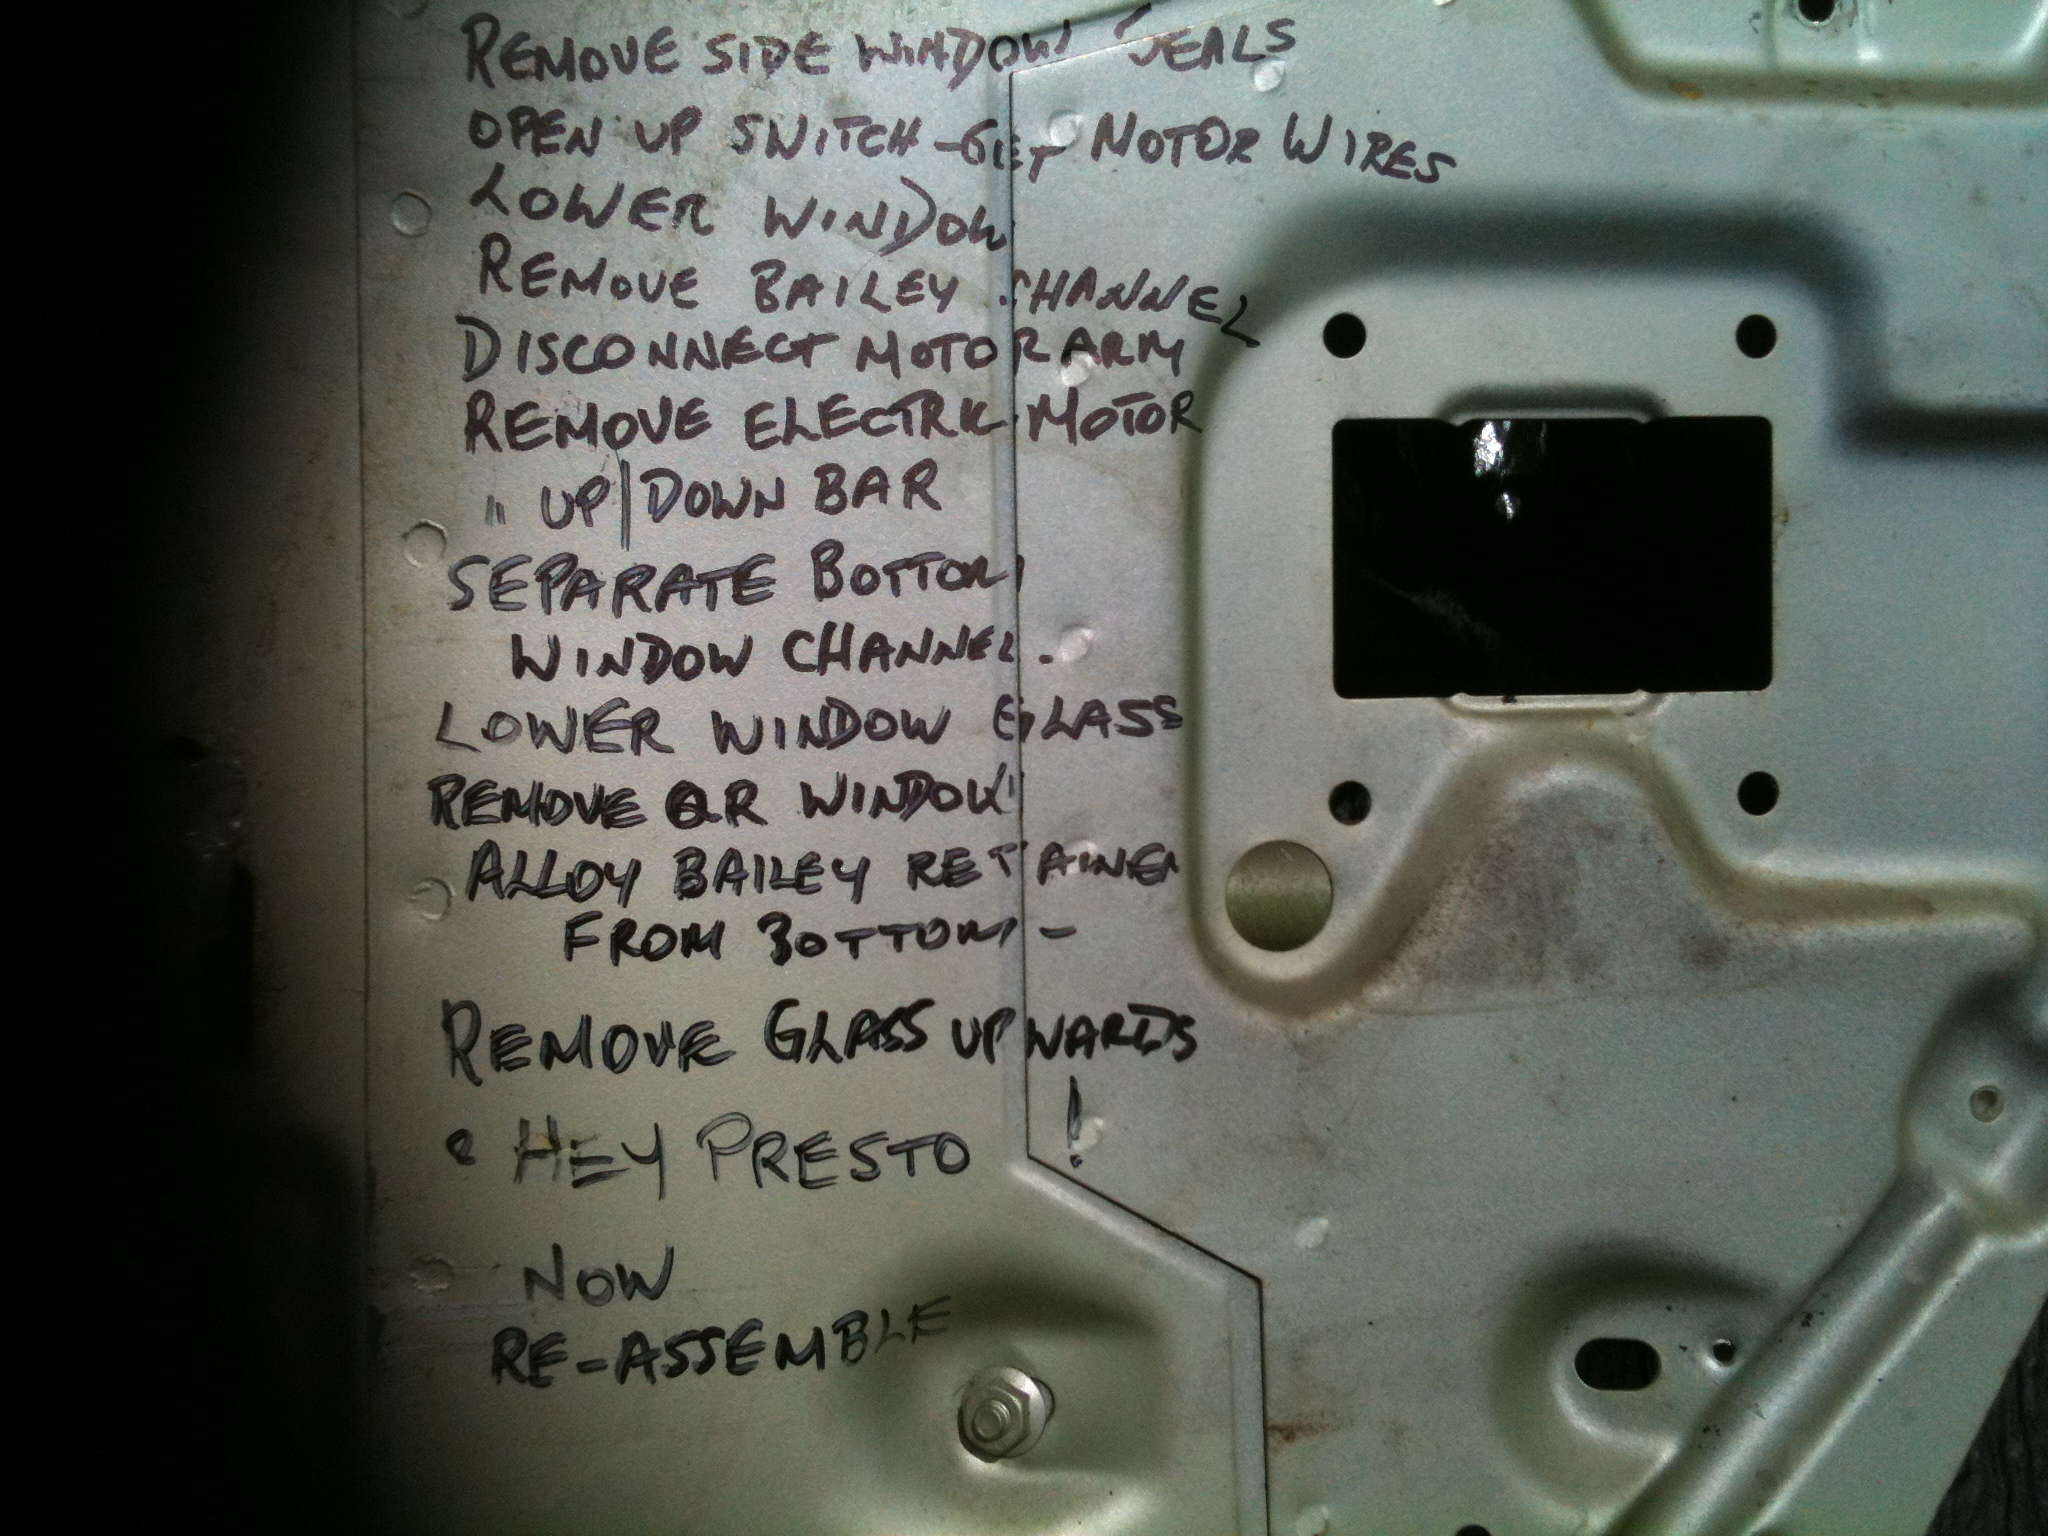 REMOVE SIDE WINDOW SEALS
OPEN UP SWITCH - GET MOTOR WIRES
LOWER WINDOW
REMOVE BAILEY CHANNEL
DISCONNECT MOTOR ARM
REMOVE ELECTRIC MOTOR
" UP/DOWN BAR
SEPARATE BOTTOM
WINDOW CHANNEL.
LOWER WINDOW GLASS
REMOVE QR WINDOW
ALLOY BAILEY RETAINER
FROM BOTTOM -
REMOVE GLASS UPWARDS
• HEY PRESTO !
NOW
RE-ASSEMBLE